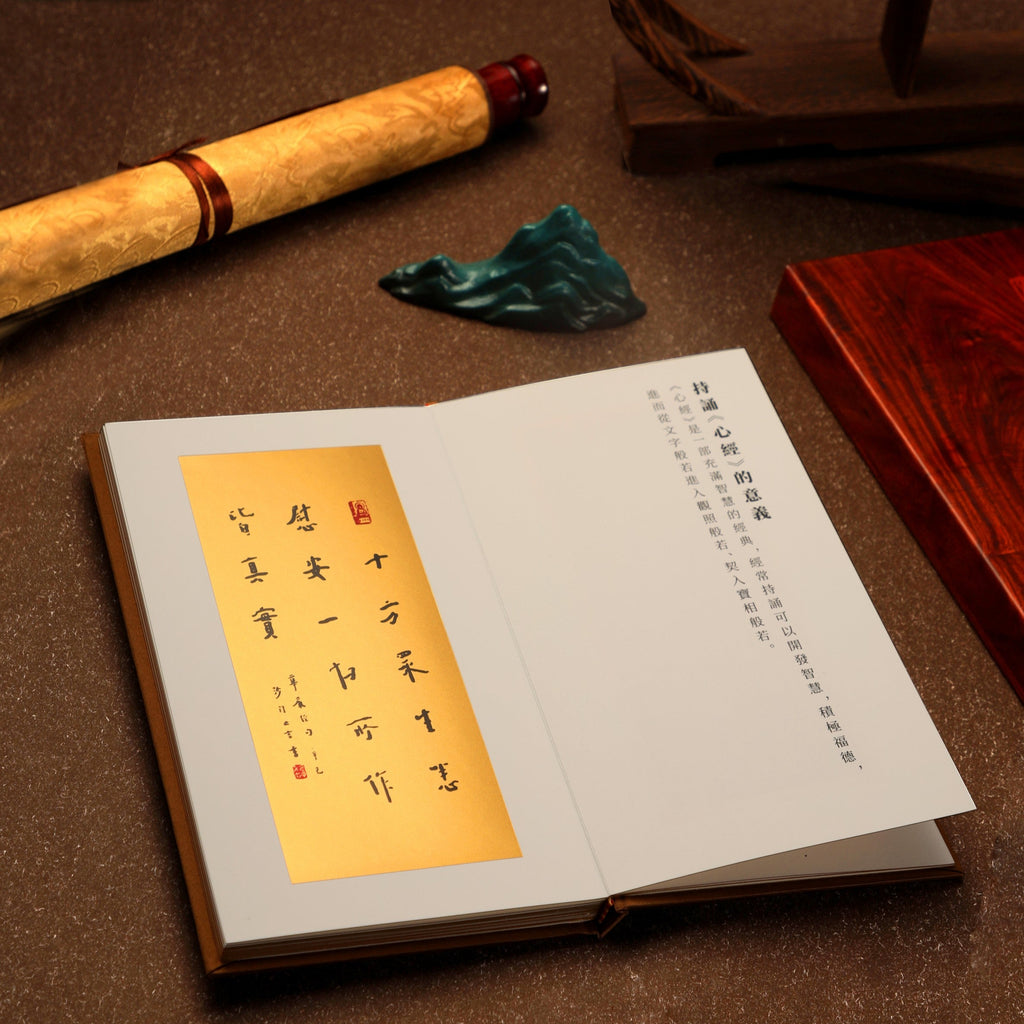 持誦《心經》的意義
《心經》是一部充滿智慧的經典，經常持誦可以開發智慧，積極福德，
進而從文字般若進入觀照般若、契入實相般若。
十方眾生悉
慰安一切所作
皆真實
華嚴經句 辛巳